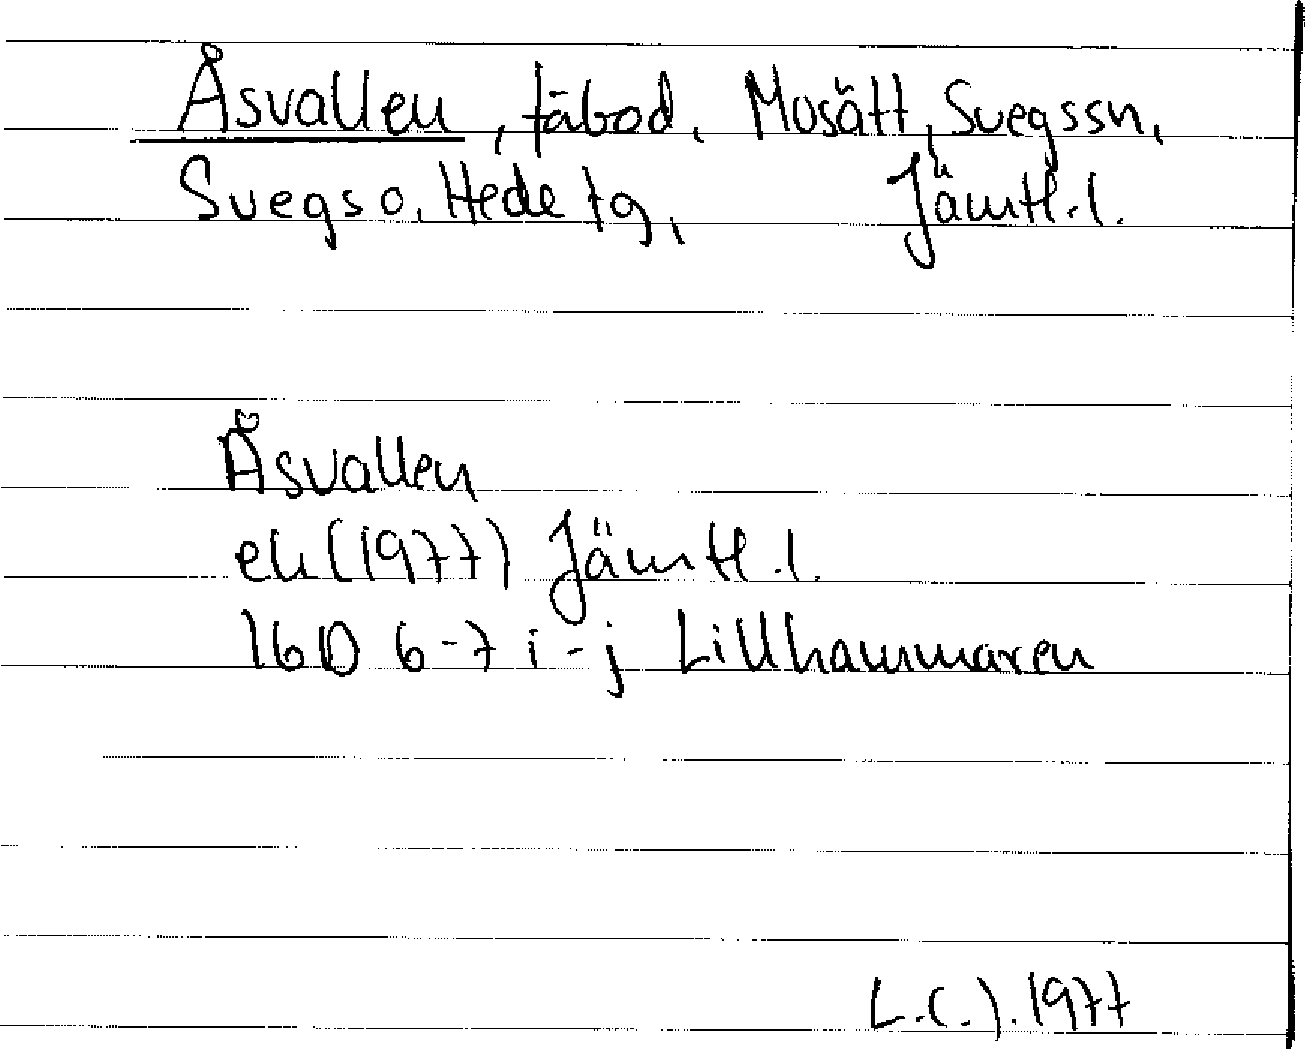 Åsvallen, fäbod, Mosätt, Svegs sn,
Svegs o, Hede tg, Jämtl. l.
Åsvallen
ek (1977) Jämtl. l.
16D 6-7 i-j Lillhammaren
L.C.J. 1977